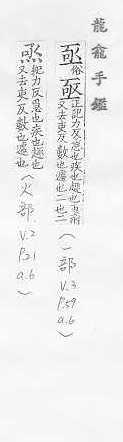 龍龕手鑑
亟俗亟正訖力反急也疾也趣也又
去吏反數也遽也二也二
(一部 v.3
p.59
a.6)
㷏訖力反急也疾也趣也
又去吏反數也遽也
(火部 v.2
p.31
a.6)